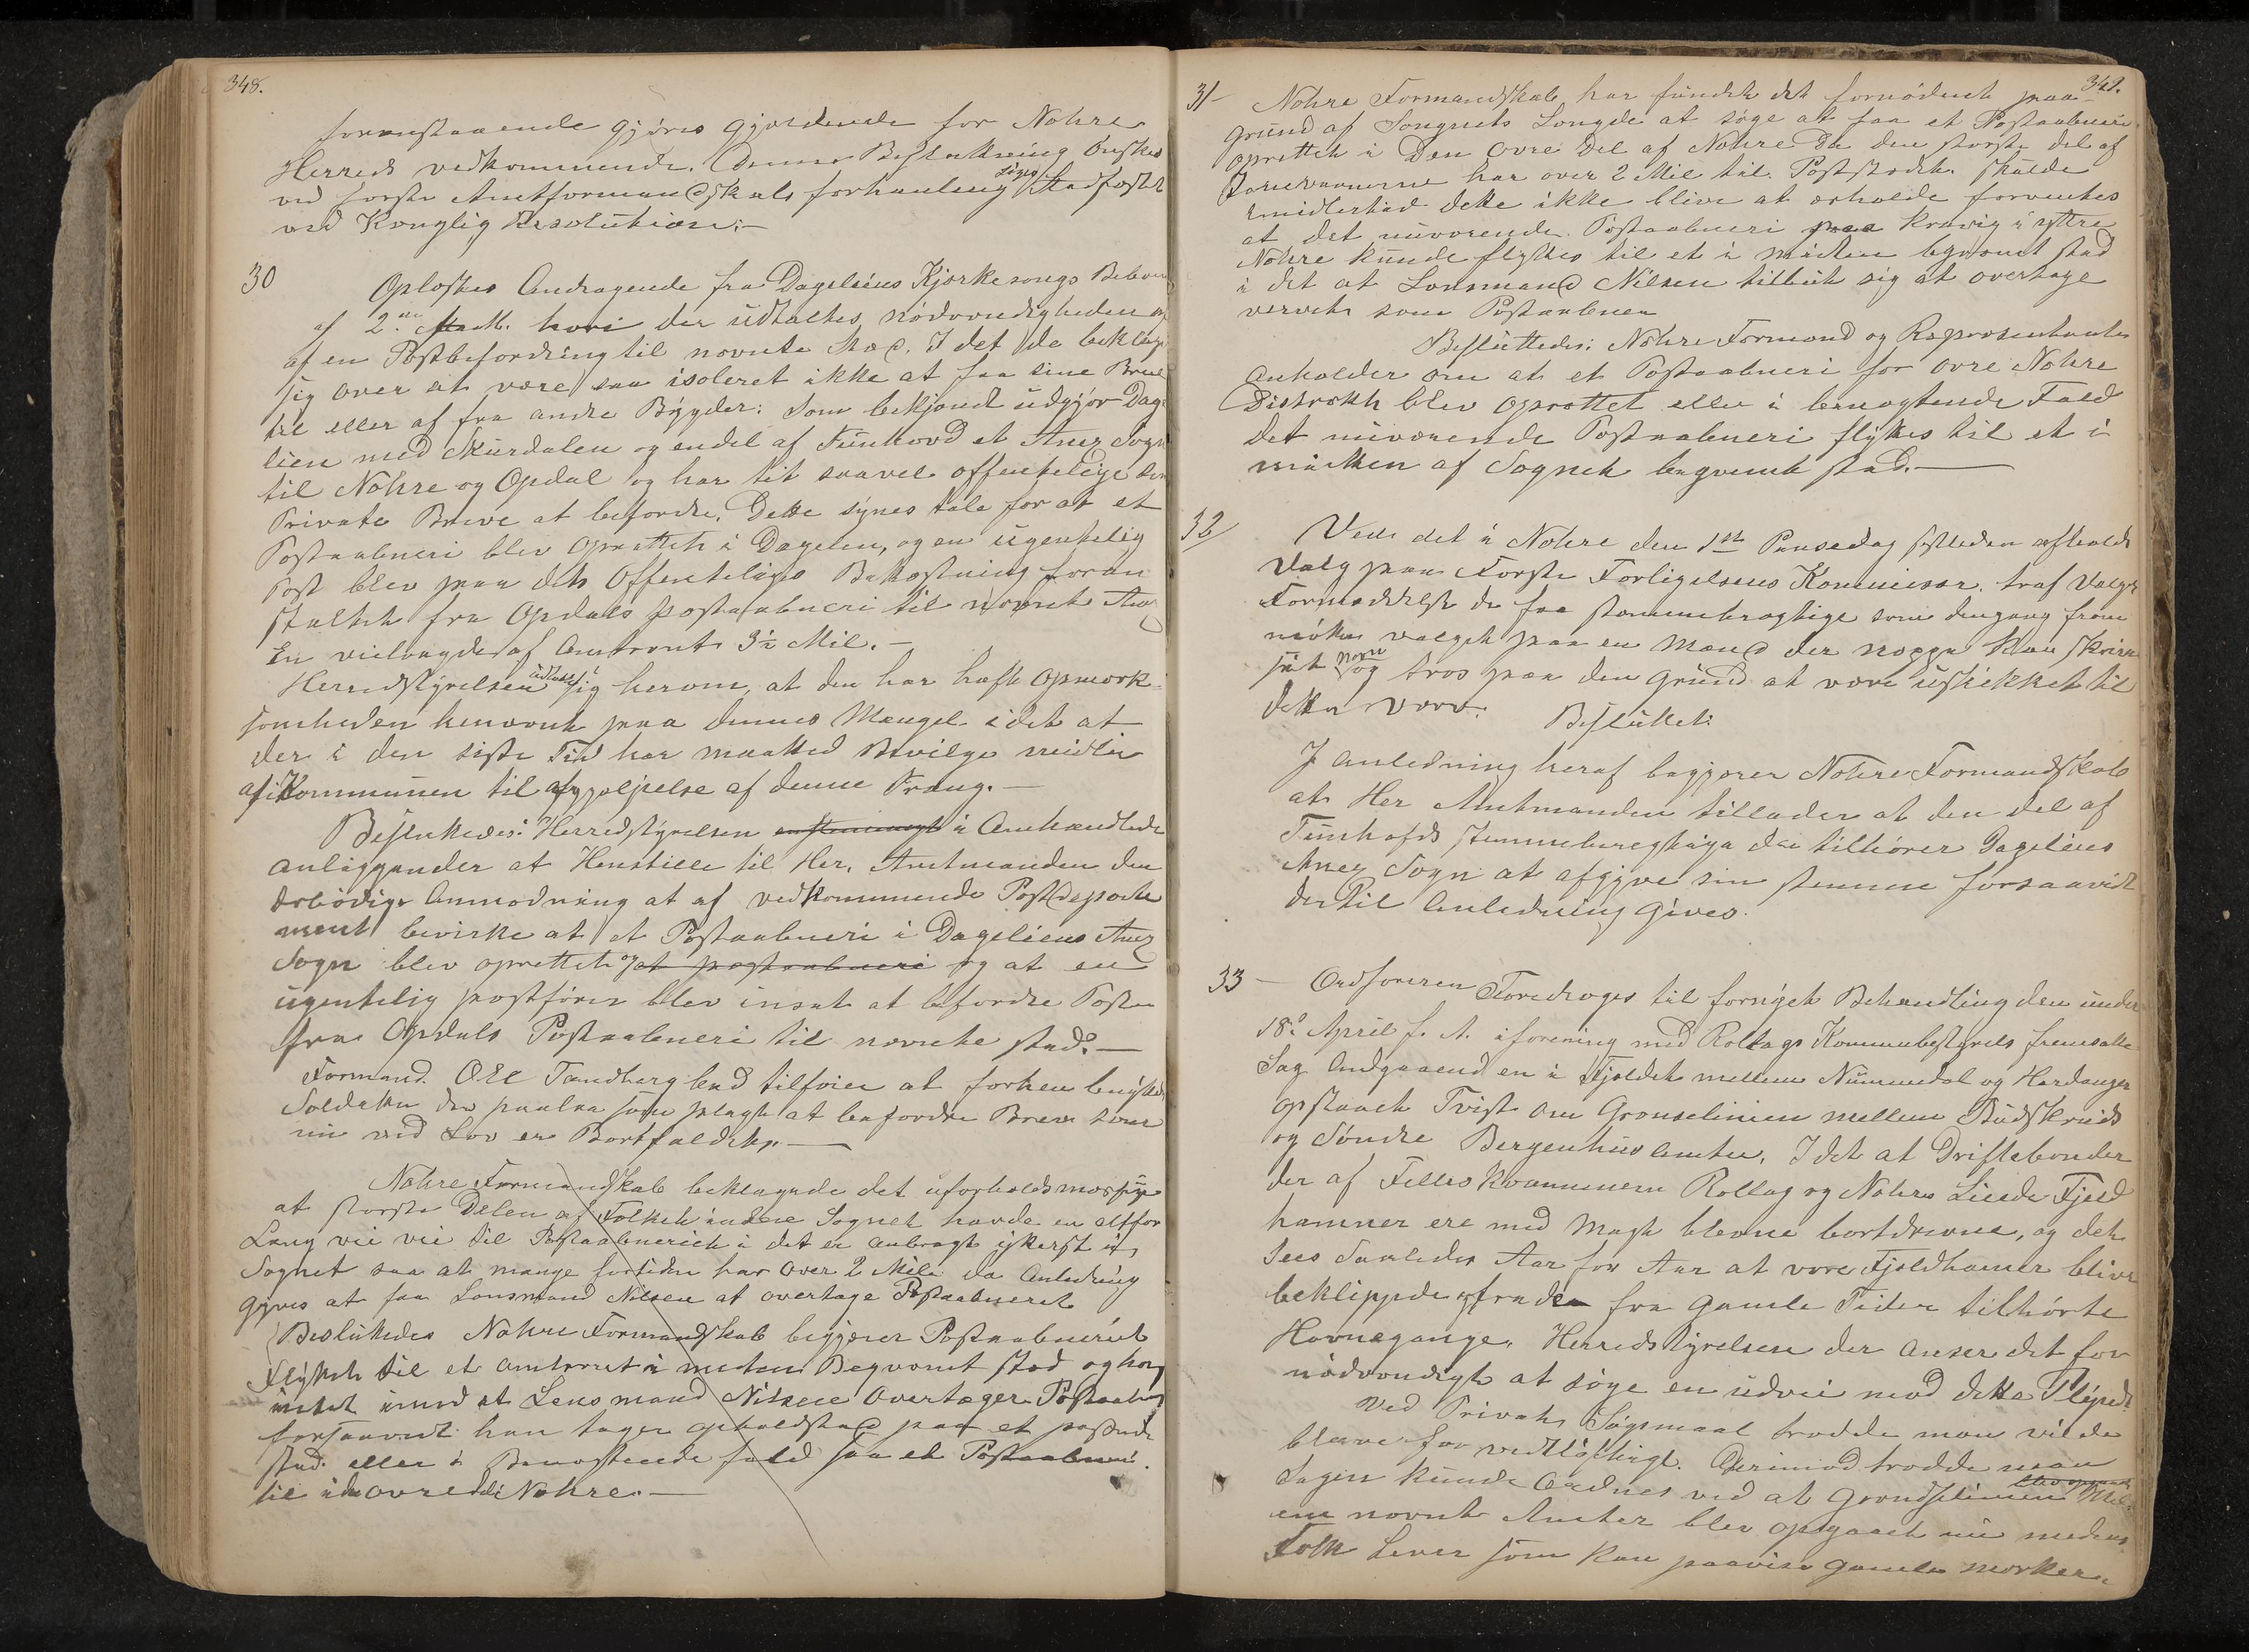 348.
foranstaaende gjöres gjældende for Nohre
Herreds vedkommende. Denne Beslutning önskes
ved første Amtformandskabs forhanling söges Stadfæstet
ved Konglig Resolution:-
30
Oplæstes Andragende fra Dagaliens Kjørkesongs Beboere
af 2den hvori der udtaltes nödvændigheden
af en Postbefordring til nævnte Sted. I det de beklage
sig over at være saa isoleret ikke at faa sine Breve
til eller af fra andre Bygder: Som bekjændt udgjör Daga
lien med Skurdalen og endel af Tunhovd et Anex Sogn
til Nohre og Opdal og har tit saavel offentelige som
Private Breve at befordre. Dette synes tale for at et
Postaabneri blev oprettet i Dagalien, og en ugentelig
Post blev paa det Offenteliges Bekostning foran
staltet fra Opdals postaabneri til nævnte Anex
En veilængde af omtrent 3½ Mil.-
Herredstyrelsen udtaler sig herom, at den har haft Opmærk-
somheden henvent paa dennes Mangel idet at
der i den siste Tid har maatted Bevilge midler
af Kommunen til afhjælpelse af denne Trang.-
Beslutedes: Herredstyrelsen enstemmigt i Omhandlede
anliggender at Henstille til Her. Amtmanden den
ærbödige Anmodning at af vedkommende Postdeparte
ment bevirke at et Postaabneri i Dagaliens Anex
Sogn blev oprettet og at postaabneri og at en
ugentelig postförer blev insat at befordre Posten
fra Opdals Postaabneri til nævnte sted.-
Formand. Ole Tandberg lod tilföie at forhen benyttedes
Soldater der paalaa som pligt at befordre Breve som
nu ved Lov er Bortfaldet.-
Nohre Formandskab beklagede det uforholdsmæssige
at største Delen af Folket i nedre Sognet havde en altfor
Lang vei til Postaabneriet i det er anbragt ytterst i
Sognet saa at mange har over 2 Mile da Anledning
gives at faa Lensmand Nilsen at overtage Postaabneriet
Beslutedes Nohre Formandskab begjærer Postaabneriet
Flyttet til et omtrent i midten Beqvemt sted og har
intet imod at Lensmand Nilsen Overtager Postaabneri
forsaavidt han tager opholdsted paa et passende
sted. eller i Benægtende fald faa et Postaabneri
til i den øvre del i Nohre.-
349.
31-
Nohre Formandskab har fundet det fornödent paa
grund af Songnets Længde at söge at faa et Postaabneri
oprettet i Den Øvre Del af Nohre da den største del af
har over 2 Mil til. Poststedet. Skulde
Emidlertid dette ikke blive at erholde forventes
at det nuværende. Postaabneri paa Kravig i yttre
Nohre kunde flyttes til et i midten beqvemt sted
i det at Lensmand Nilsen tilbüt sig at overtage
vervet som Postaabner
Besluttedes: Nohre Formand og Repræsentanter
Anholder om at et Postaabneri for øvre Nohre
Distrekt blev Oprettet eller i benægtende Fald
det nuværende Postaabneri flyttes til et i
midten af Sognet beqvemt sted.-
32/
Ved det i Nohre den 1ste Pinsedag sistleden afholdt
Valg paa Første Forligelsens Kommissær. traf valgs
Formeddelst de faa stemmebregtige som dengang frem
mötte valget paa en Mand der neppe kan skrive
sit navn og tros paa den grund at være uskikket til
dette verv. Beslutet:
I anledning heraf begjærer Nohre Formandskab
at Her Amtmanden tillader at den del af
Tunhofds stemmeberegtige der tilhörer Dagaliens
Anex Sogn at afgive sin stemme forsaavidt
der til Anledning gives.
33-
Ordføreren Foredrages til fornyet Behandling den under
18de April f. A. iforening med Rollags Kommunebestyrels fremsatte
Sag Angaaend en i Fjeldet mellem Nummedal og Hardanger
opstaaet Tvist om Grænselinien mellem Budskruds
og Söndre Bergenhus Amter. I det at Driftebönder
der af Felles Kommunen Rollag og Nohre Liede Fjeld
hamner ere med Magt blevne bortdrevne, og det
sees Saaledes Aar for Aar at vore Fjeldhamner blive
beklippede fra de fra gamle Tider tilhörte
Havnegange. Herredstyrelsen der anser det for
nödvendigt at söge en udvei mod dette
Ved Privat Sögsmaal trodde man vilde
bleve for vedtlöftigt. Derimod trodde man
Sagen kunde Ordnes ved at Grændselinien blev opgaaet Mel
em nævnte Amter blev opgaaet nu medens
Folk Lever som kan paavise gamle mærker.